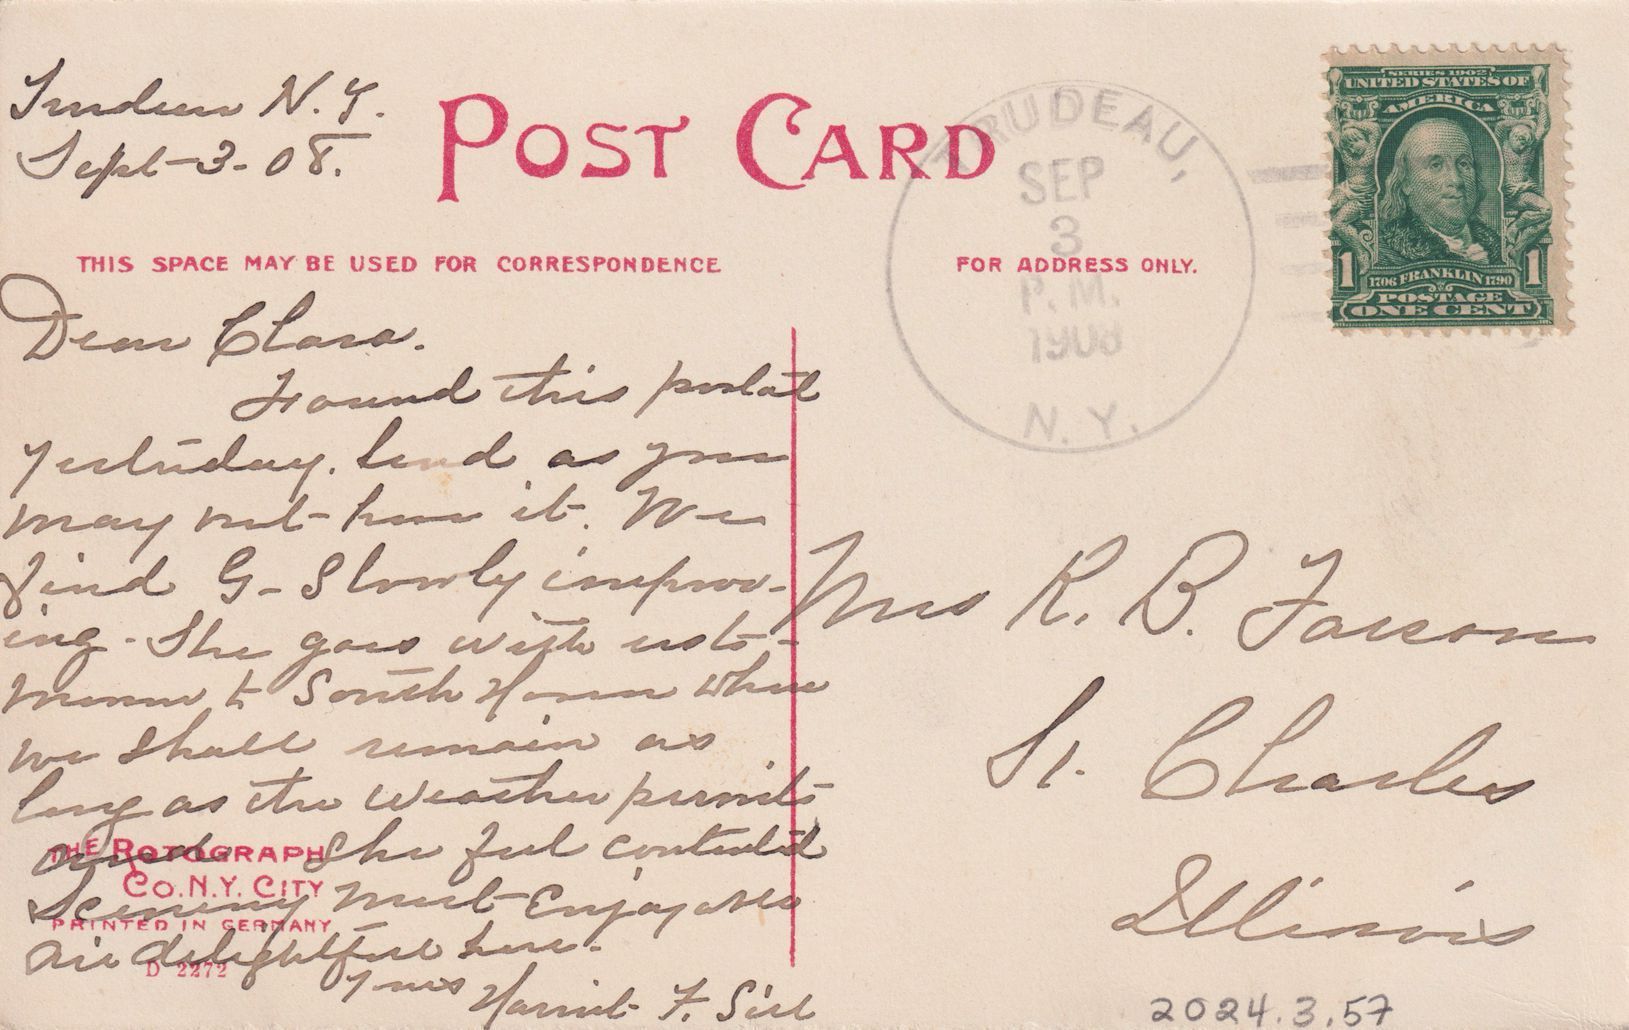 Trudeau N.Y.
Sept-3-08.
POST CARD
THIS SPACE MAY BE USED FOR CORRESPONDENCE
FOR ADDRESS ONLY.
TRUDEAU,
SEP
3
P.M.
1908
N.Y.
SERIES 1902
UNITED STATES OF
AMERICA
1 1706 FRANKLIN 1790 1
POSTAGE
ONE CENT
Dear Clara.
Found this postal
yesterday. Send as you
may not have it. We
find G- Slowly improv-
ing - She goes with us to-
morrow to South Haven where
we shall remain as
long as the weather permits
and She feel contented
Scenery most Enjoyable
air delightful here.
Yours Harriet F. Sill
Mrs R. B. Farson
St. Charles
Illinois
THE ROTOGRAPH
CO. N.Y. CITY
PRINTED IN GERMANY
D 2272
2024.3.57